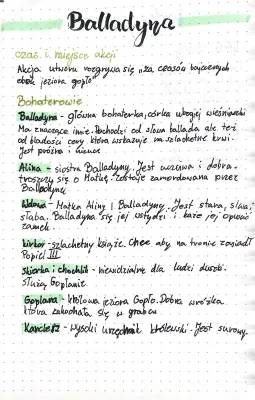 Balladyna
czas i miejsce akcji
Akcja utworu rozgrywa się "za czasów bajecznych
obok jeziora gopło"
Bohaterowie
Balladyna - główna bohaterka, córka ubogiej wieśniaczki
Ma znaczące imie. Pochodzi od słowa ballada ale też
od bladości cery która wskazuje na szlachetne krwi.
Jest próżna i
Alina - siostra Balladyny. Jest uczciwa i dobra.
troszczy się o Matkę. Zostaje zamordowana przez
Balladynę
Wdowa - Matka Aliny i Balladyny. Jest stara,
słaba. Balladyna się jej wstydzi i każe jej opuścić
zamek.
Kirkor - szlachetny książe. Chce aby na tronie zasiadł
Popiel III
Skierka i chochlik - niewidzialne dla ludzi duszki.
służą Goplanie
Goplana - królowa jeziora Gopło. Dobra wróżka
która zakochała się w grabcu
Kanclerz - wysoki urzędnik królewski. Jest surowy.